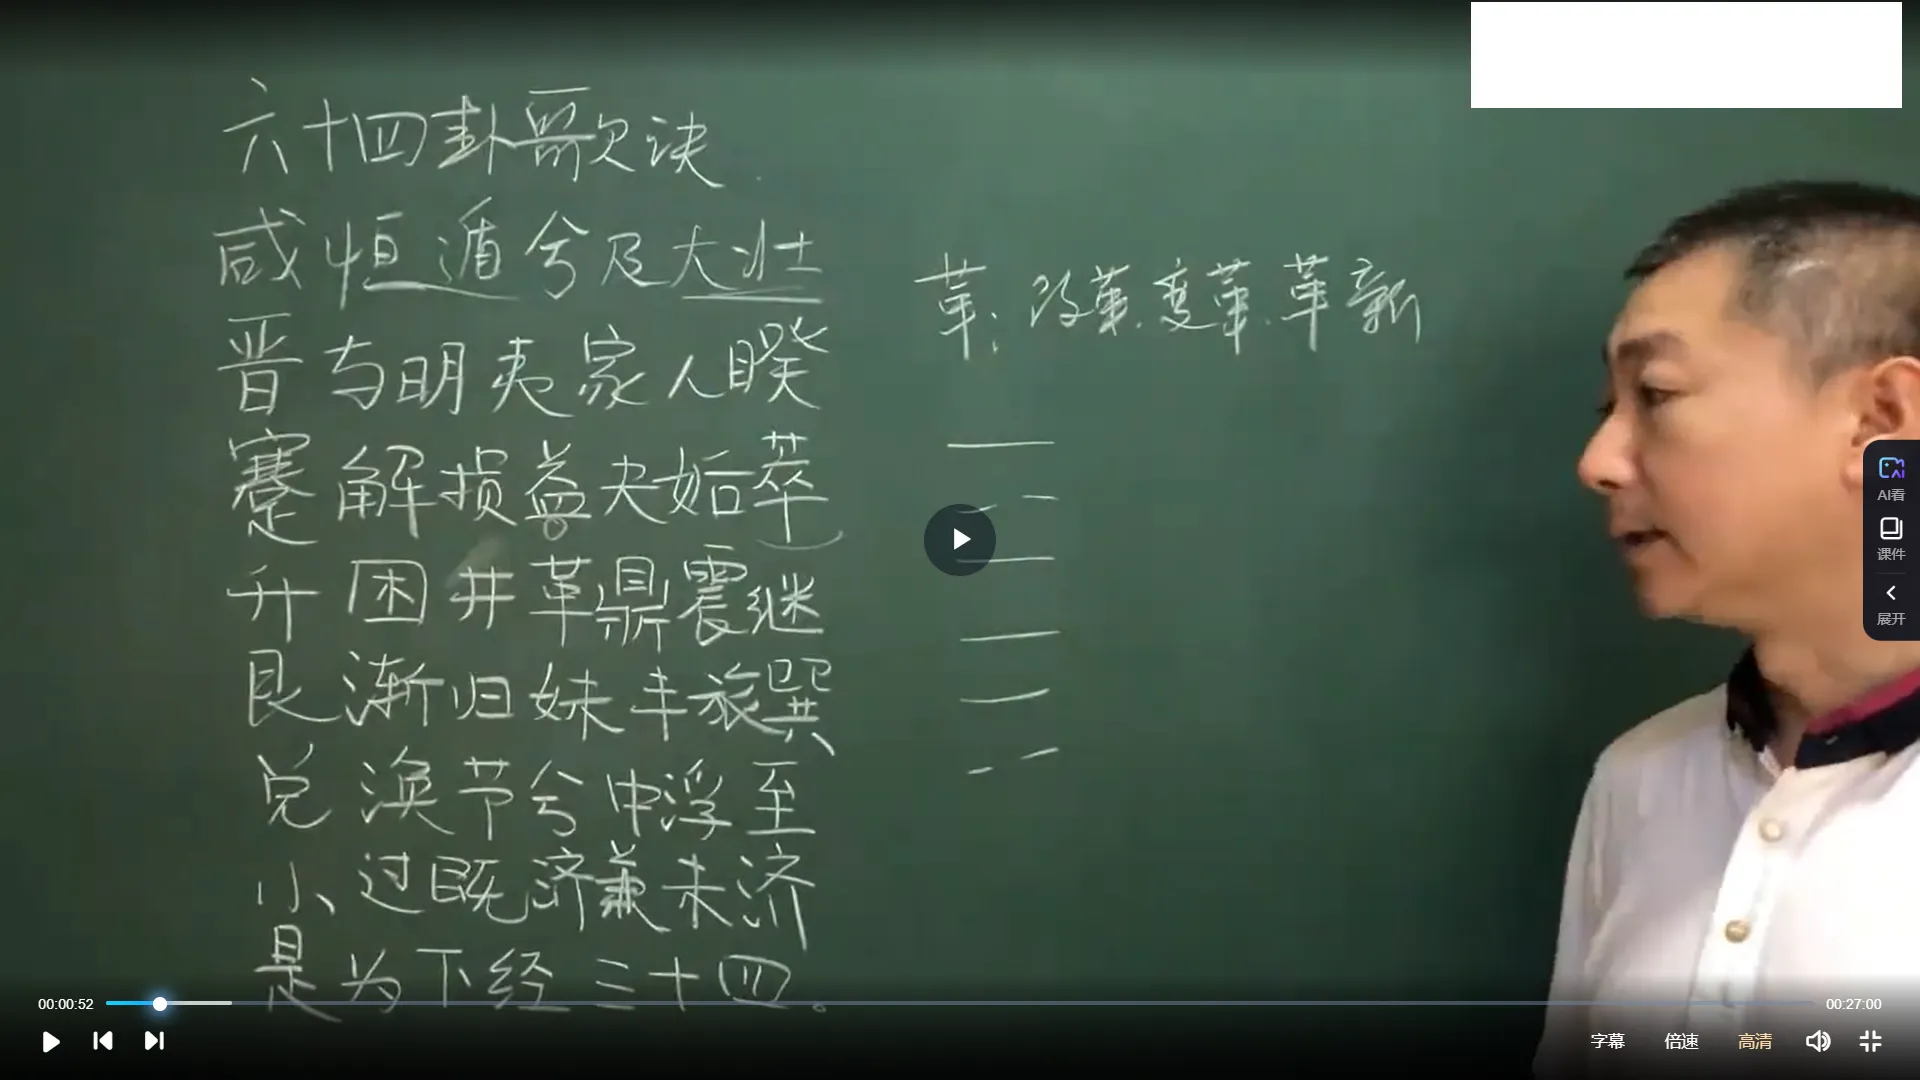 六十四卦歌诀
咸恒遁兮及大壮
晋与明夷家人睽
蹇解损益夬姤萃
升困井革鼎震继
艮渐归妹丰旅巽
兑涣节兮中浮至
小过既济兼未济
是为下经三十四。
革:改革.变革.革新
AI看
课件
展开
00:00:52
00:27:00
字幕
倍速
高清